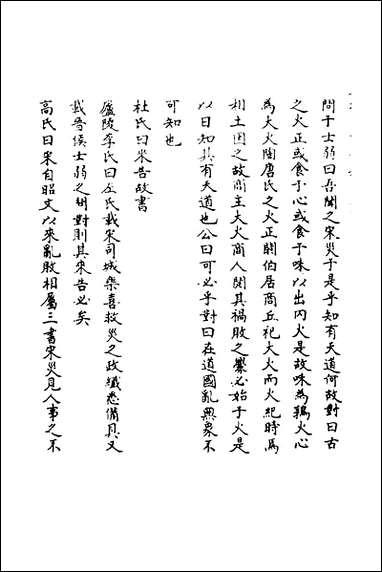 問于士弱曰吾聞之宋災于是乎知有天道何故對曰古
之火正或食于心或食于咮以出内火是故咮為鶉火心
為大火陶唐氏之火正閼伯居商丘祀大火而火紀時焉
相土因之故商主大火商人閱其禍敗之釁必始于火是
以日知其有天道也公曰可必乎對曰在道國亂無象不
可知也
杜氏曰來告故書
廬陵李氏曰左氏載宋司城樂喜救災之政纖悉備具又
載晉侯士弱之問對則其來告必矣
高氏曰宋自昭文以來亂敗相屬三書宋災見人事之不